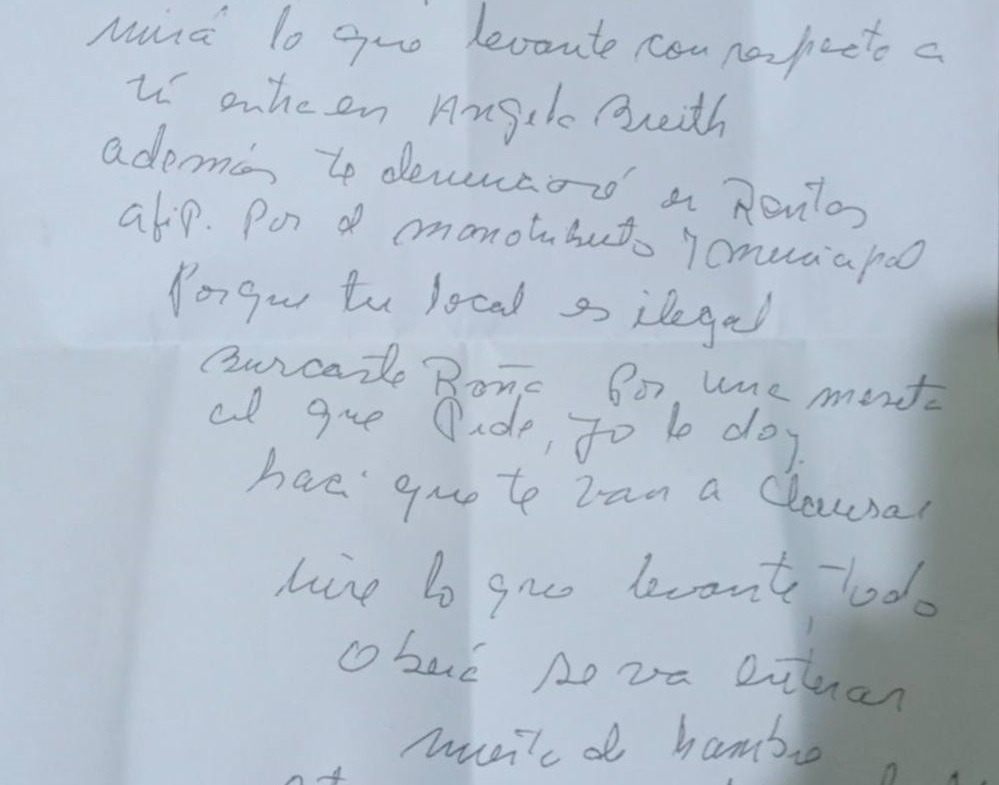 mirá lo que levante con respecto a
ti entre en Angela Breith
además te denuncioré en Rentas
afip. Por el monotributo y municipal
Porque tu local es ilegal
Burcaste Roña Por una meseta
al que Pide, yo le doy.
haci que te van a Clausar
mire lo que levante, Todo
Oberá se va enterar
muerta de hambre